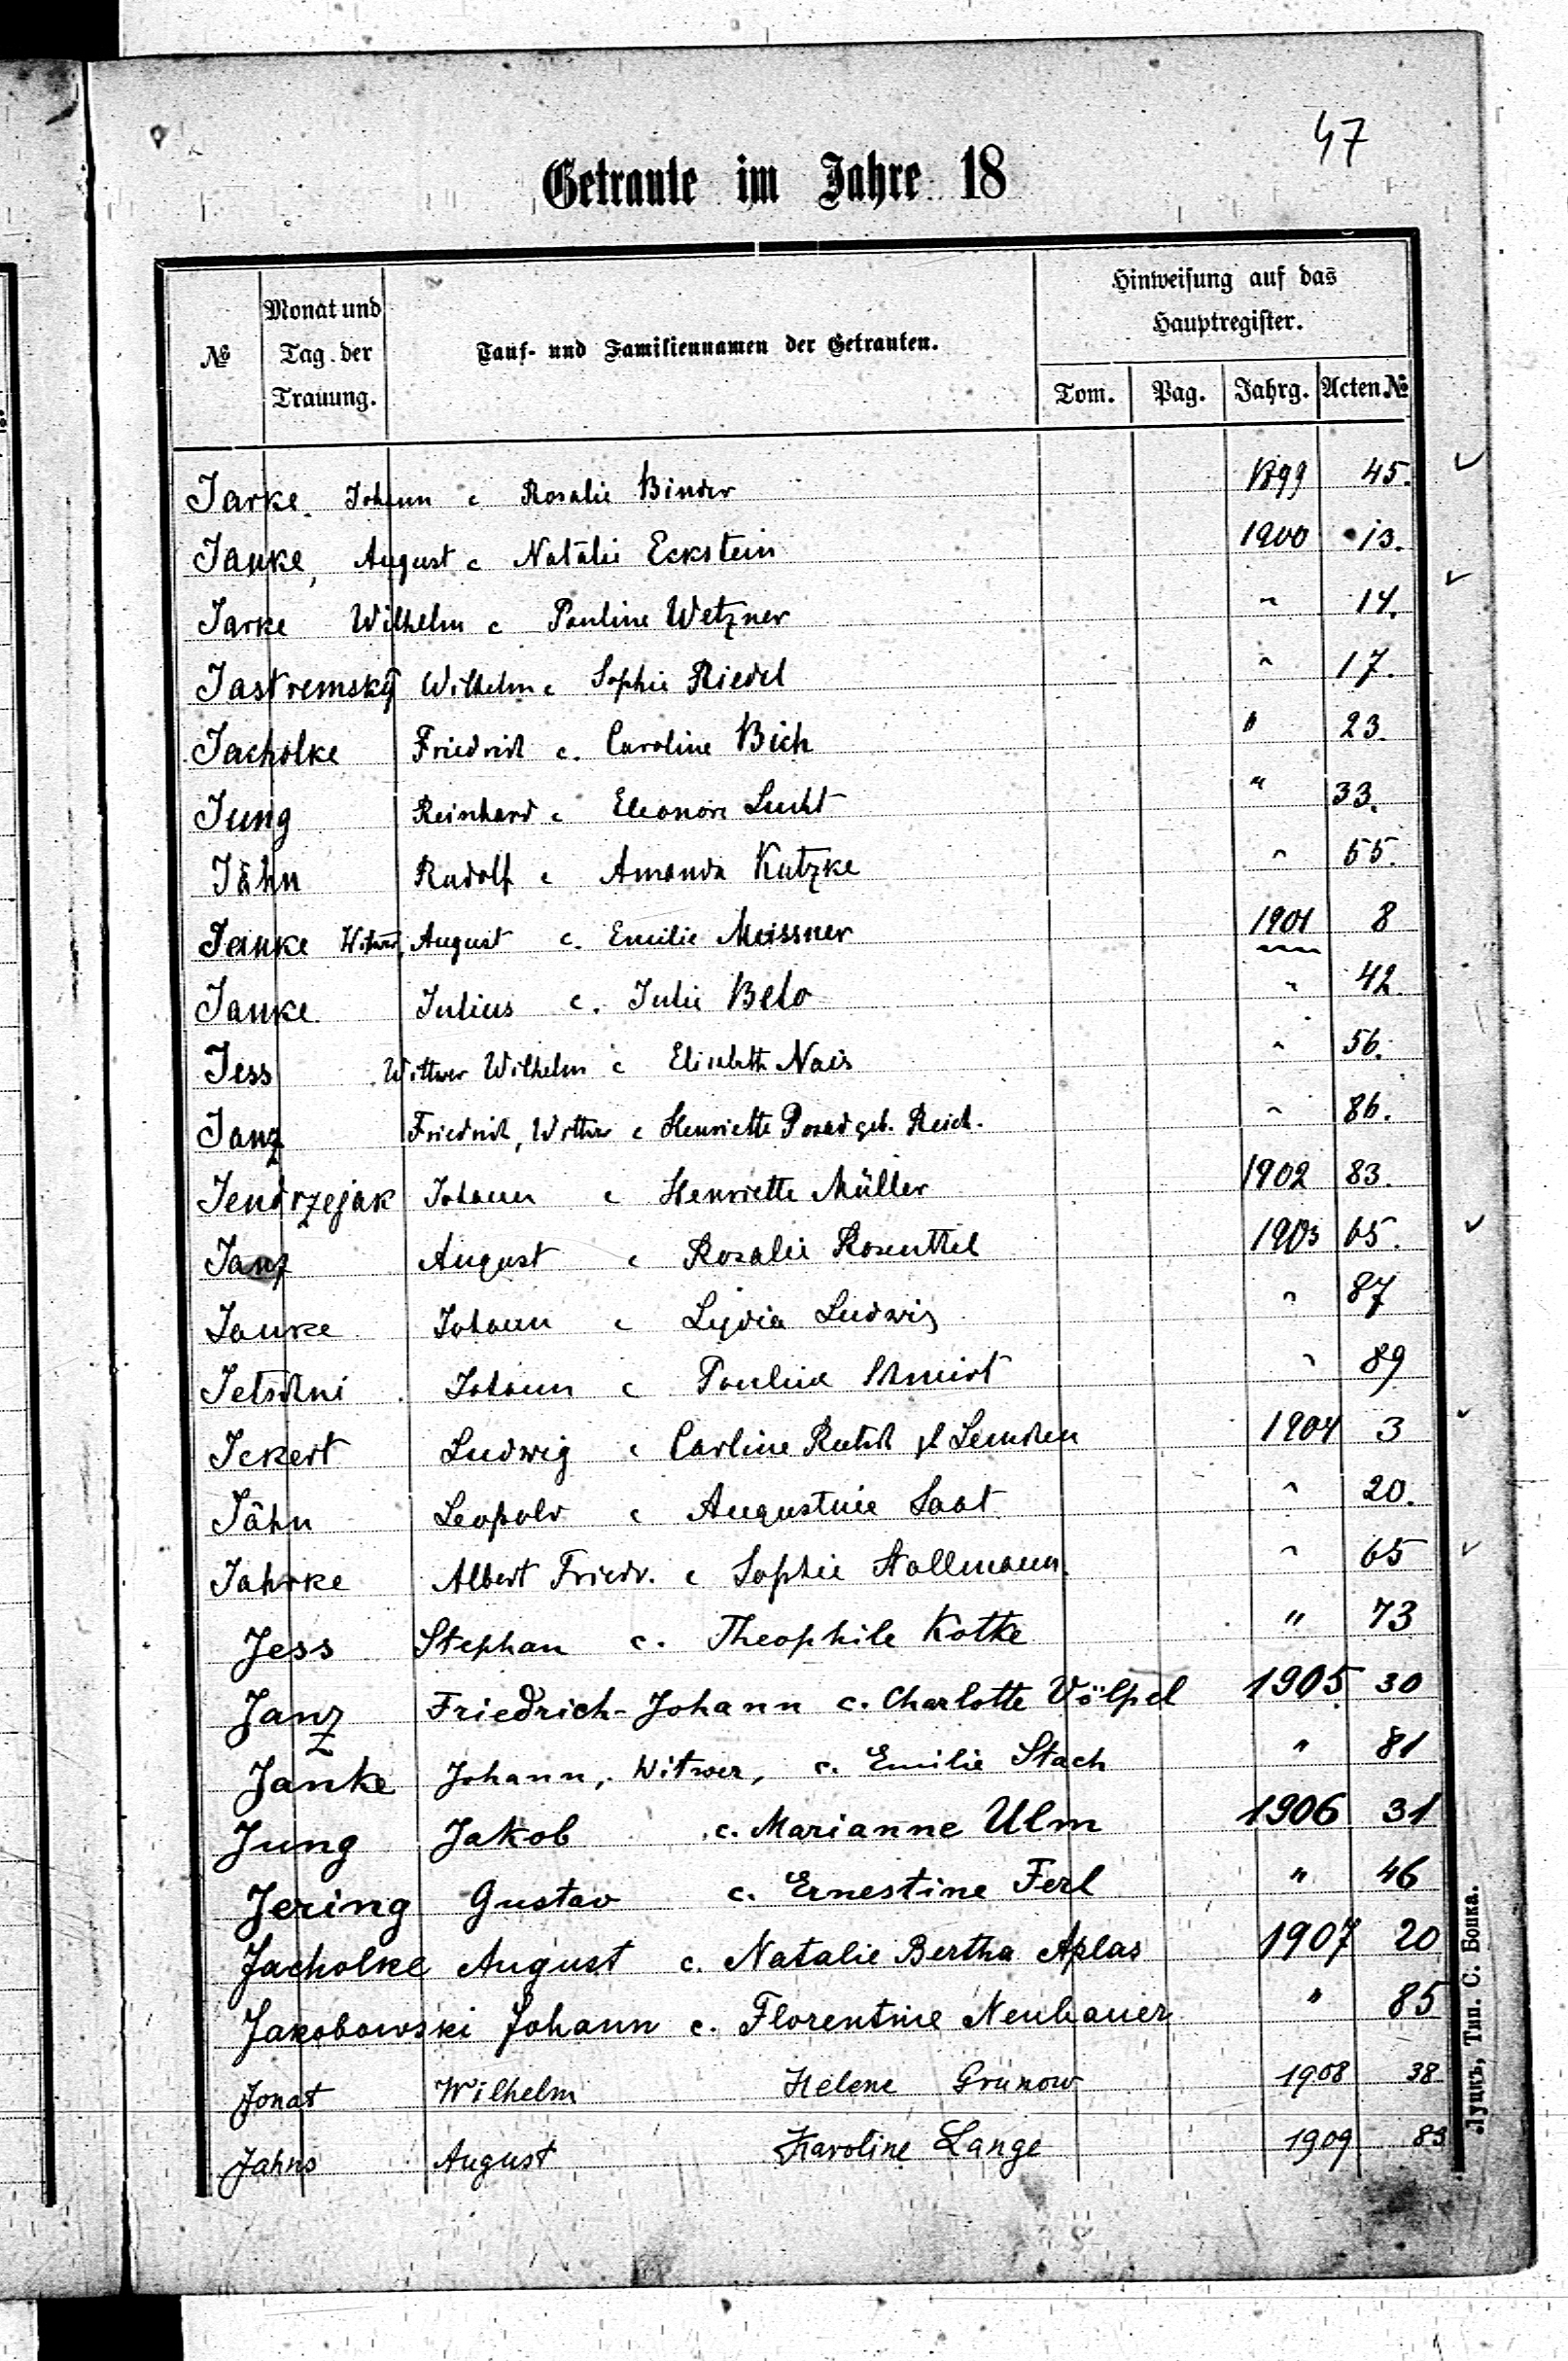 47
Getraute im Jahre 18
№ Monat und Tag der Trauung. Tauf- und Familiennamen der Getrauten. Hinweisung auf das Hauptregister.
Tom. Pag. Jahrg. Acten №
Jarke. Johann c Rosalie Binder 1899 45.
Janke, August c Natalie Eckstein 1900 13.
Jarke Wilhelm c Pauline Wetzner " 14.
Jastremsky Wilhelm c Sophie Riedel " 17.
Jacholke Friedrich c. Caroline Bich " 23.
Jung Reinhard c Eleonore Lucht " 33.
Jähn Rudolf c Amanda Kutzke " 55.
Janke Witwer, August c. Emilie Meissner 1901 8
Janke Julius c. Julie Belo " 42.
Jess Wittwer Wilhelm c Elisabeth Nais " 56.
Janz Friedrich, Wittwer c Henriette geb. Reich. " 86.
Jendrzejak Johann c Henriette Müller 1902 83.
Janz August c Rosalie Rosenthal 1903 65.
Janke Johann c Lydia Ludwig " 87
Jetschni Johann c Pauline Schmidt " 89
Jckert Ludwig c Carline 1904 3
Jähn Leopold c Augustine Saat " 20.
Jahrke Albert Friedr. c Sophie Hollmann. " 65
Jess Stephan c. Theophile Kotke " 73
Janz Friedrich-Johann c. Charlotte Völpel 1905. 30
Janke Johann, Witwer, c. Emilie Stach " 81
Jung Jakob c. Marianne Ulm 1906 31
Jering Gustav c. Ernestine Ferl " 46
Jacholke August c. Natalie Bertha Aplas 1907 20
Jakobowski Johann c. Florentine Neubauer " 85
Jonat Wilhelm Helene Grunow 1908 38
Jahns August Karoline Lange 1909 83
Луцкъ, Тип. С. Бопка.